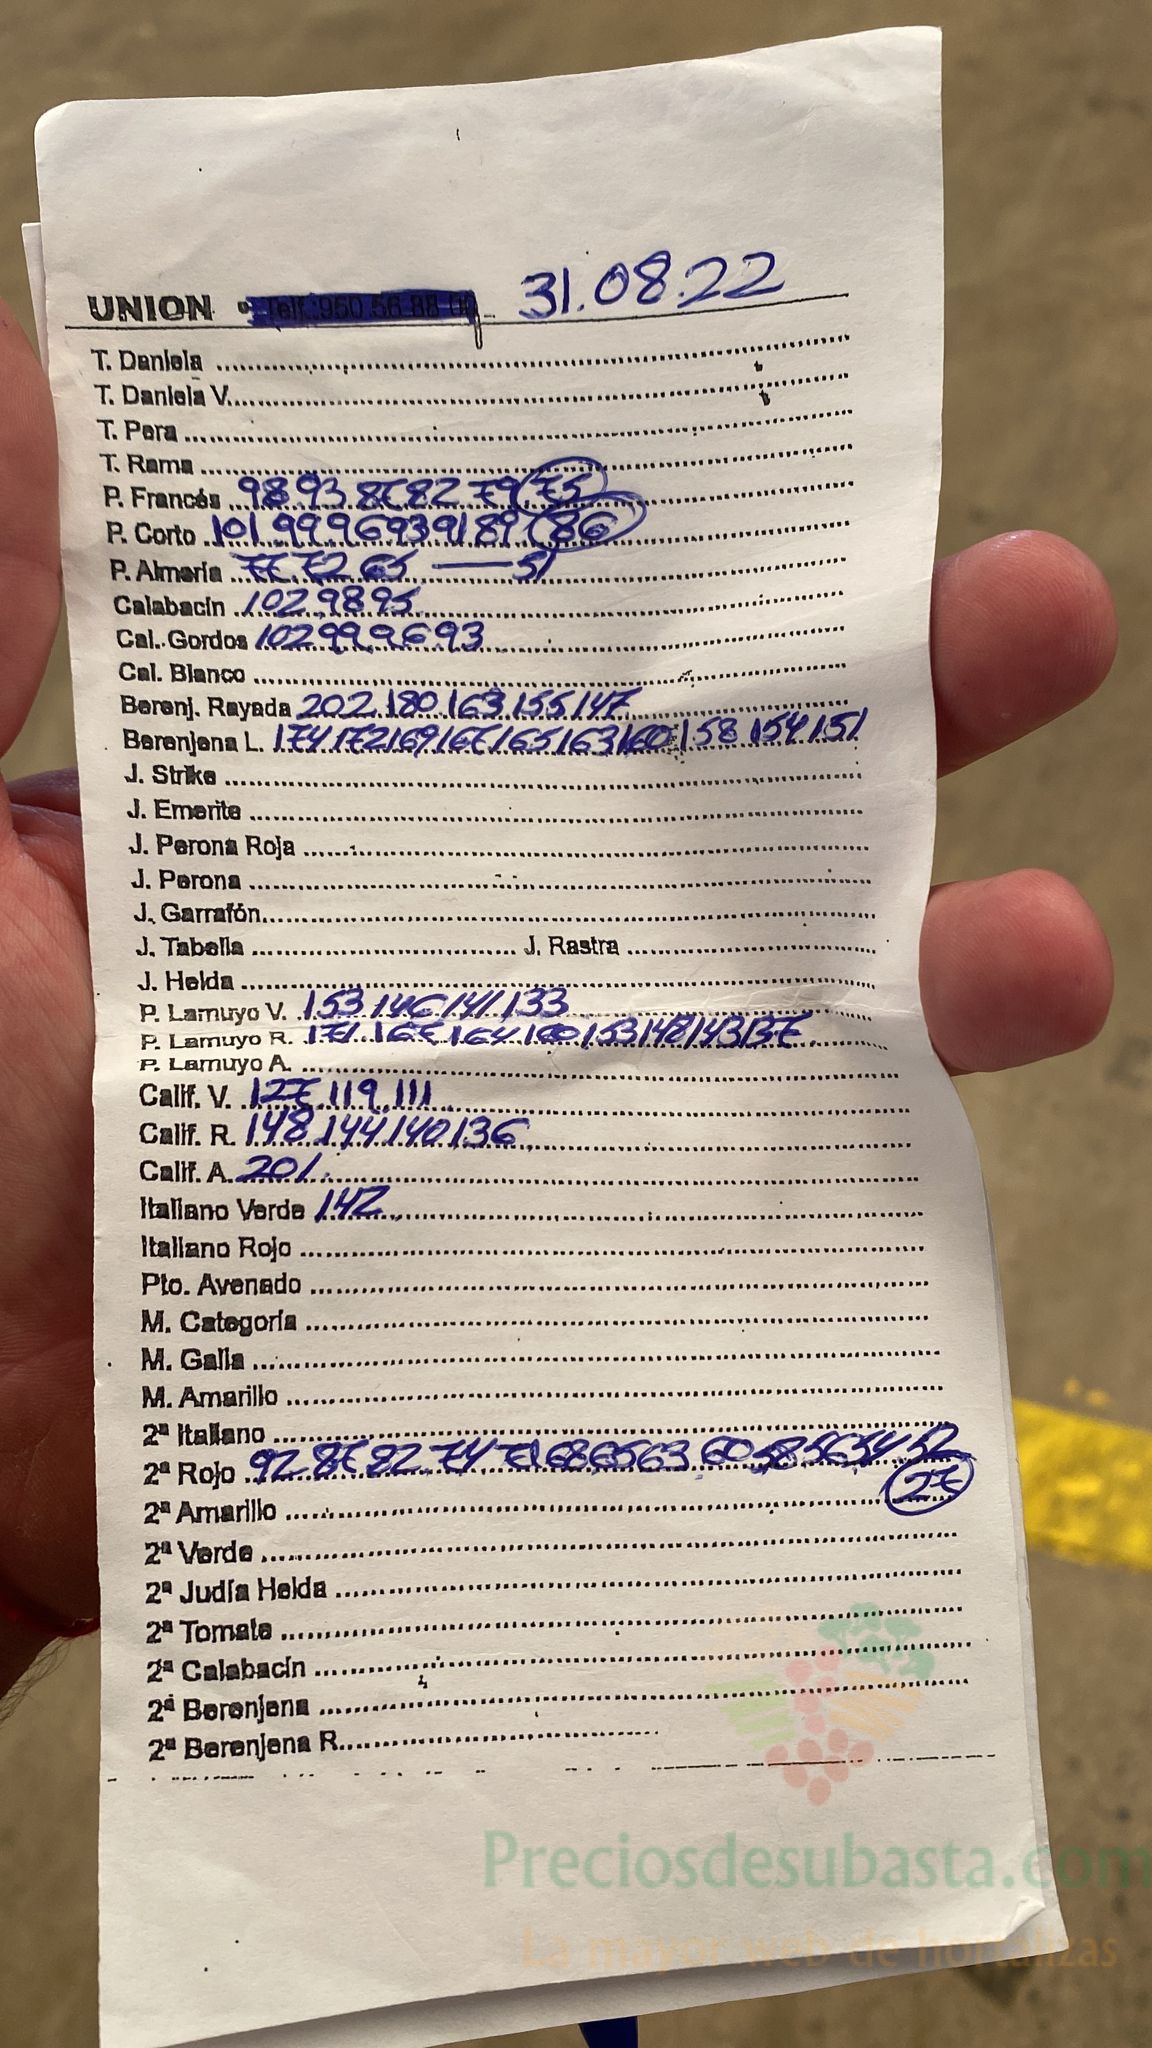 UNION • Telf.:950 56 88 00 31.08.22
T. Daniela
T. Daniela V.
T. Pera
T. Rama
P. Francés 98 93 87 82 79 75
P. Corto 101 99 96 93 91 89 86
P. Almería 77 72 65 — 51
Calabacín 102 98 95
Cal. Gordos 102 99 96 93
Cal. Blanco
Berenj. Rayada 202 180 163 155 147
Berenjena L. 174 172 169 167 165 163 160 158 154 151
J. Strike
J. Emerite
J. Perona Roja
J. Perona
J. Garrafón
J. Tabella J. Rastra
J. Helda
P. Lamuyo V. 153 146 141 133
P. Lamuyo R. 171 167 164 160 153 148 143 137
P. Lamuyo A.
Calif. V. 127 119 111
Calif. R. 148 144 140 136
Calif. A. 201
Italiano Verde 142
Italiano Rojo
Pto. Avenado
M. Categoría
M. Galla
M. Amarillo
2ª Italiano
2ª Rojo 92 87 82 74 71 68 65 63 60 58 56 54 52
27
2ª Amarillo
2ª Verde
2ª Judía Helda
2ª Tomate
2ª Calabacín
2ª Berenjena
2ª Berenjena R.
Preciosdesubasta.com
La mayor web de hortalizas